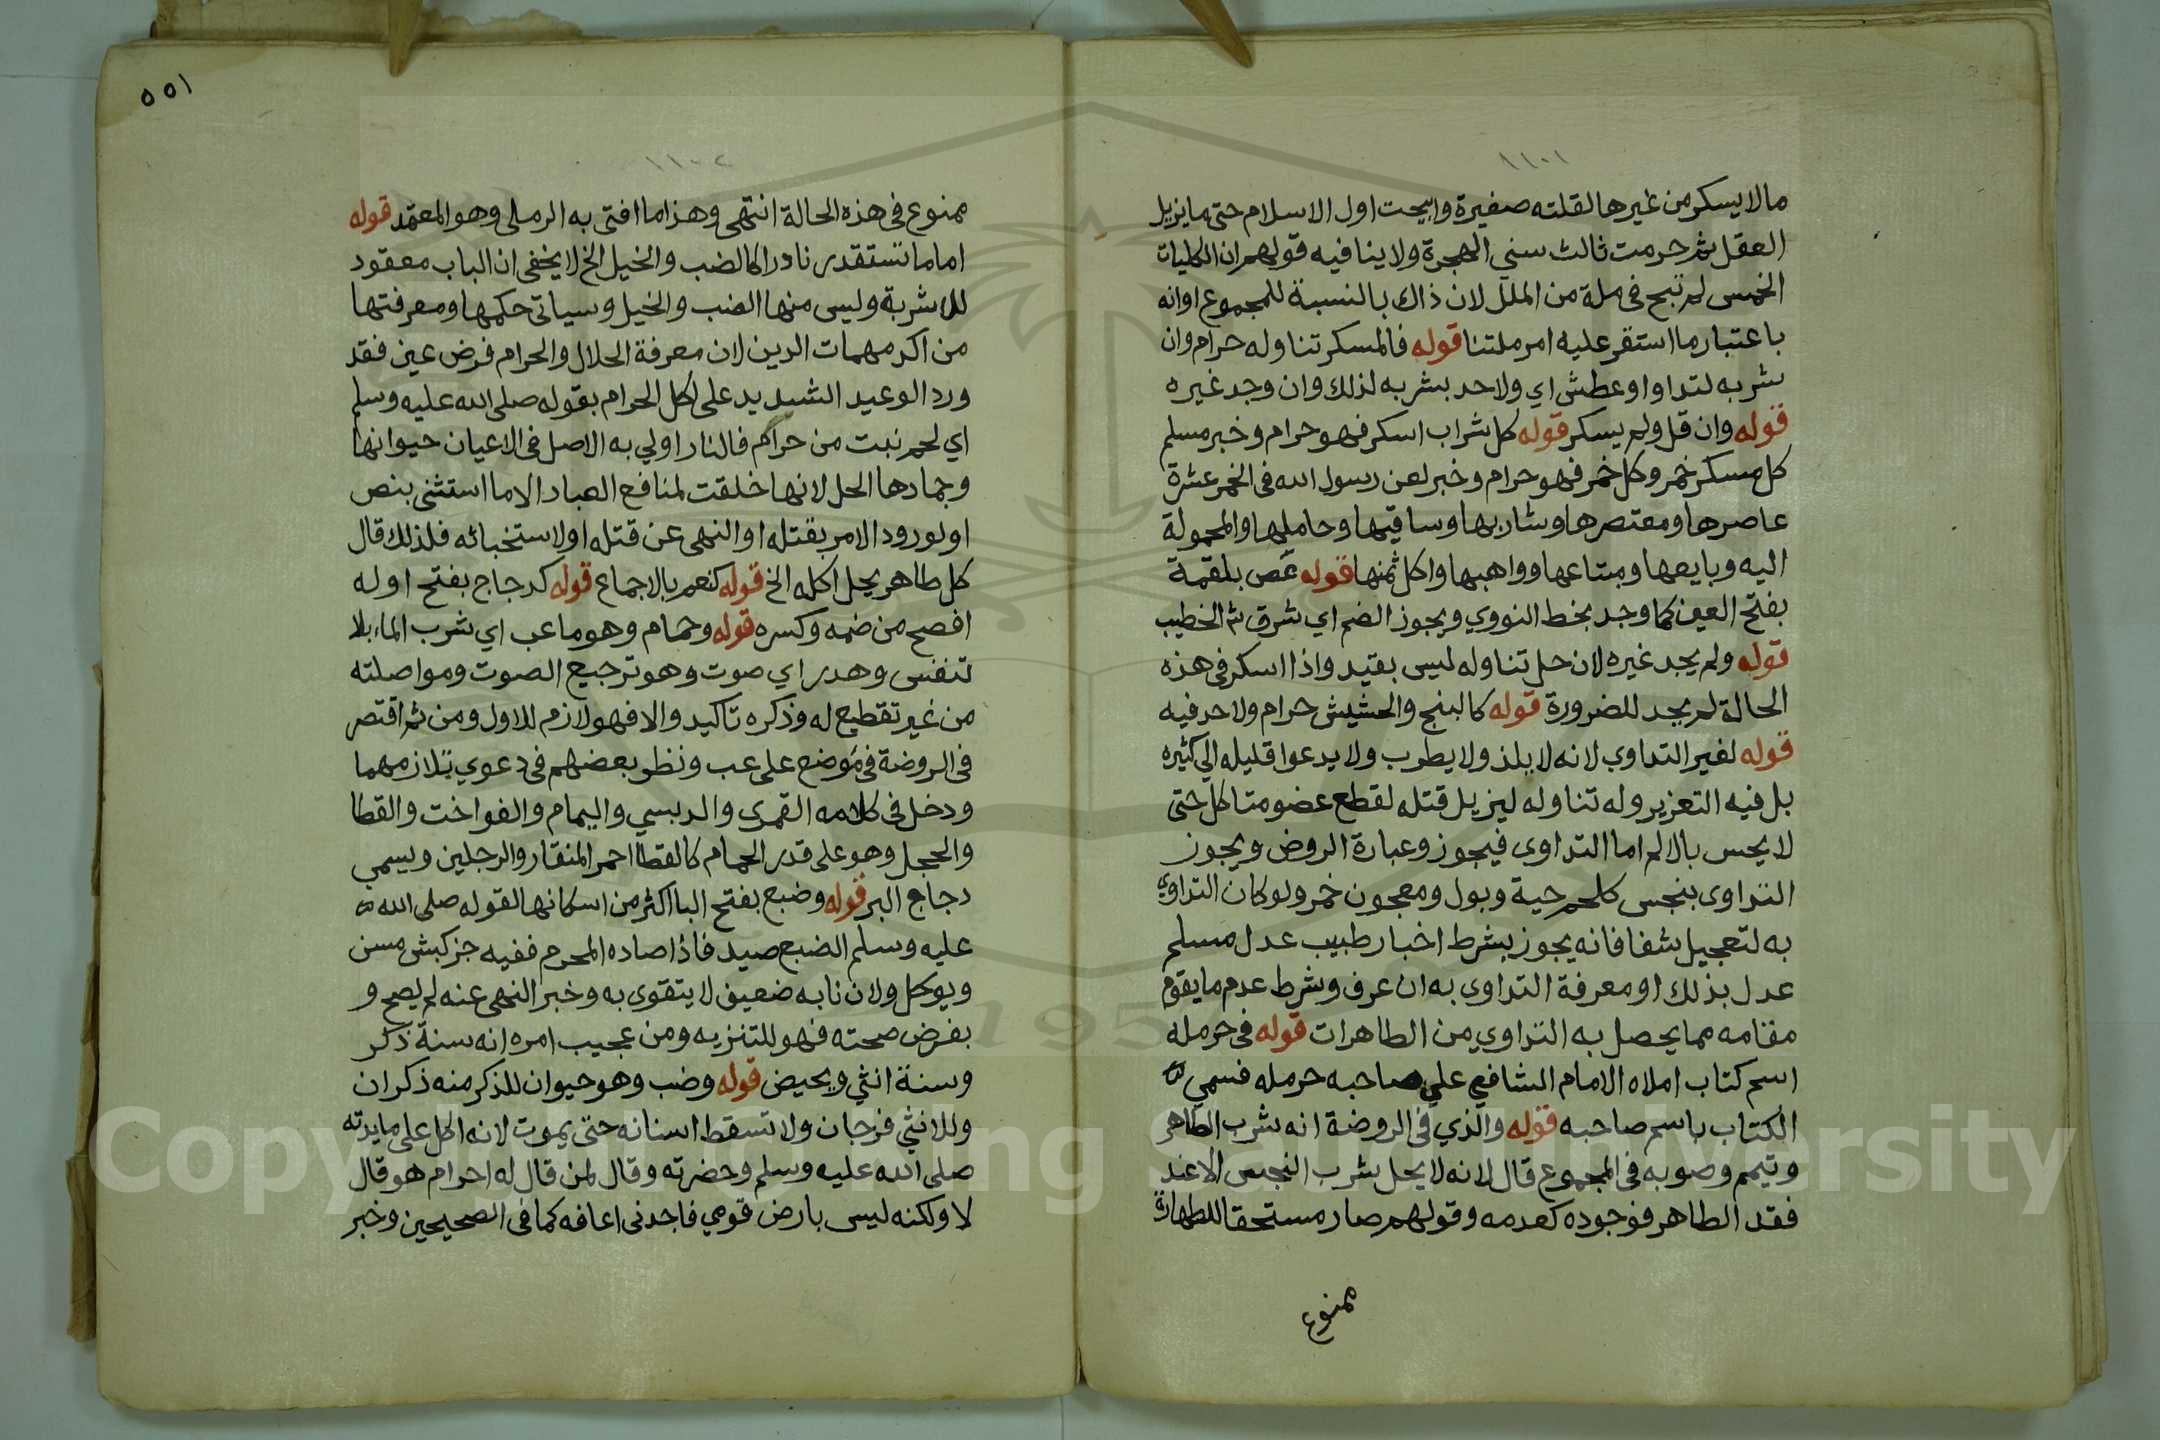 ١١٠١
ما لا يسكر من غيرها لقلته صغيرة وابيحت اول الاسلام حتى ما يزيل
العقل ثم حرمت ثالث سني الهجرة ولا ينافيه قولهم ان الكليات
الخمس لم تبح في ملة من الملل لان ذاك بالنسبة للمجموع او انه
باعتبار ما استقر عليه امر ملتنا قوله فالمسكر تناوله حرام وان
شربه لتداو او عطش اي ولا حد بشربه لذلك وان وجد غيره
قوله وان قل ولم يسكر قوله كل شراب اسكر فهو حرام وخبر مسلم
كل مسكر خمر وكل خمر فهو حرام وخبر لعن رسول الله في الخمر عشرة
عاصرها ومعتصرها وشاربها وساقيها وحاملها والمحمولة
اليه وبايعها ومبتاعها وواهبها واكل ثمنها قوله غص بلقمة
بفتح الغين كما وجد بخط النووي ويجوز الضم اي شرق ش الخطيب
قوله ولم يجد غيره لان حل تناوله ليس بقيد واذا اسكر في هذه
الحالة لم يحد للضرورة قوله كالبنج والحشيش حرام ولا حد فيه
قوله لغير التداوي لانه لا يلذ ولا يطرب ولا يدعوا قليله الي كثيره
بل فيه التعزير وله تناوله ليزيل قتله لقطع عضو متاكل حتى
لا يحس بالالم اما التداوى فيجوز وعبارة الروض ويجوز
التداوى بنجس كلحم حية وبول ومعجون خمر ولو كان التداوي
به لتعجيل شفا فانه يجوز بشرط اخبار طبيب عدل مسلم
عدل بذلك او معرفة التداوى به ان عرف وشرط عدم ما يقوم
مقامه مما يحصل به التداوي من الطاهرات قوله في حرمله
اسم كتاب املاه الامام الشافعي علي صاحبه حرمله فسمي
الكتاب باسم صاحبه قوله والذي في الروضة انه شرب الطاهر
وتيمم وصوبه في المجموع قال لانه لا يحل شرب النجس الا عند
فقد الطاهر فوجوده كعدمه وقولهم صار مستحقا للطهارة
ممنوع
٥٥١
١١٠٢
ممنوع في هذه الحالة انتهى وهذا ما افتى به الرملى وهو المعتمد قوله
اما ما تستقدر نادرا كالضب والخيل الخ لا يخفى ان الباب معقود
للاشربة وليس منها الضب والخيل وسياتى حكمها ومعرفتها
من اكد مهمات الدين لان معرفة الحلال والحرام فرض عين فقد
ورد الوعيد الشديد على اكل الحرام بقوله صلى الله عليه وسلم
اي لحم نبت من حرام فالنار اولي به الاصل في الاعيان حيوانها
وجمادها الحل لانها خلقت لمنافع العباد الا ما استثنى بنص
او لورود الامر بقتله او النهى عن قتله او لاستخبائه فلذلك قال
كل طاهر يحل اكله الخ قوله كنعم بالاجماع قوله كدجاج بفتح اوله
افصح من ضمه وكسره قوله وحمام وهو ما عب اي شرب الماء بلا
تنفس وهدر اي صوت وهو ترجيع الصوت ومواصلته
من غير تقطيع له وذكره تاكيد والا فهو لازم للاول ومن ثم اقتصر
في الروضة في موضع على عب ونظر بعضهم في دعوي تلازمهما
ودخل في كلامه القمرى والدبسي واليمام والفواخت والقطا
والحجل وهو على قدر الحمام كالقطا احمر المنقار والرجلين ويسمي
دجاج البر قوله وضبع بفتح البا اكثر من اسكانها لقوله صلى الله
عليه وسلم الضبع صيد فاذا صاده المحرم ففيه جز كبش مسن
ويوكل ولان نابه ضعيف لا يتقوى به وخبر النهى عنه لم يصح و
بفرض صحته فهو للتنزيه ومن عجيب امره انه سنة ذكر
وسنة انثي ويحيض قوله وضب وهو حيوان للذكر منه ذكران
وللانثي فرجان ولا تسقط اسنانه حتى يموت لانه اكل على مايدته
صلى الله عليه وسلم وحضرته وقال لمن قال له احرام هو قال
لا ولكنه ليس بارض قومي فاجدنى اعافه كما في الصحيحين وخبر
Copyright © King Saud University
1957